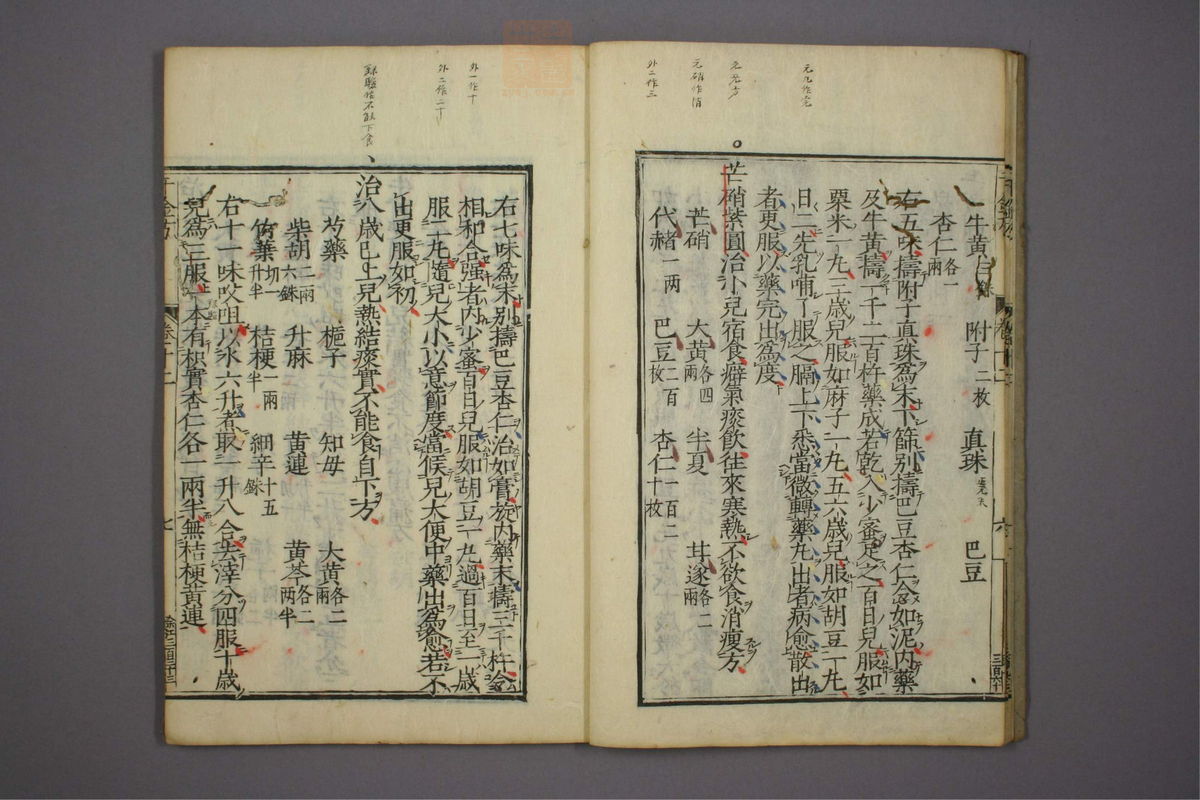 元九作丸
元无方
元硝作消
外二作三
牛黃 附子二枚 真珠 巴豆
杏仁各一兩
右五味擣附子真珠爲末下篩別擣巴豆杏仁令如泥內藥
及牛黃擣一千二百杵藥成若乾入少蜜足之百日兒服如
粟米一丸三歲兒服如麻子一丸五六歲兒服如胡豆一丸
日二先乳哺了服之膈上下悉當微轉藥丸出者病愈散出
者更服以藥完出爲度
芒硝紫圓治小兒宿食癖氣痰飲往來寒熱不欲食消瘦方
芒硝 大黃各四兩 半夏 甘遂各二兩
代赭一两 巴豆二百枚 杏仁一百二十枚
外一作十
外二作二十
不能下食
右七味爲末別擣巴豆杏仁治如膏旋內藥末擣三千杵令
相和合强者內少蜜百日兒服如胡豆一丸過百日至一歲
服二丸隨兒大小以意節度當候兒大便中藥出爲愈若不
出更服如初
治八歲已上兒熱結痰實不能食自下方
芍藥 梔子 知毋 大黃各二兩
柴胡二兩六銖 升麻 黃連 黃芩各二两半
竹葉切一升半 桔梗一兩半 細辛十五銖
右十一味㕮咀以水六升煮取一升八合去滓分四服十歲
兒爲三服一本有枳實杏仁各一兩半無桔梗黃連
千金方 卷十二 七
六